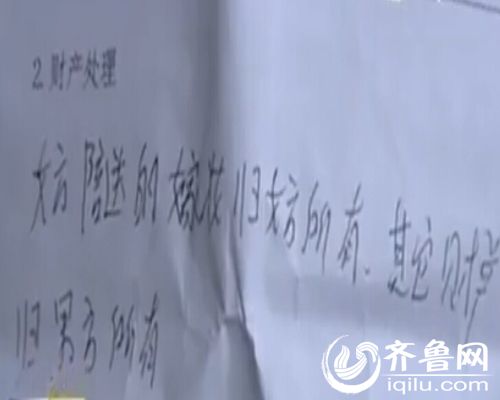 2.财产处理
女方陪送的嫁妆归女方所有、其它财产
归男方所有
齐鲁网
iqilu.com